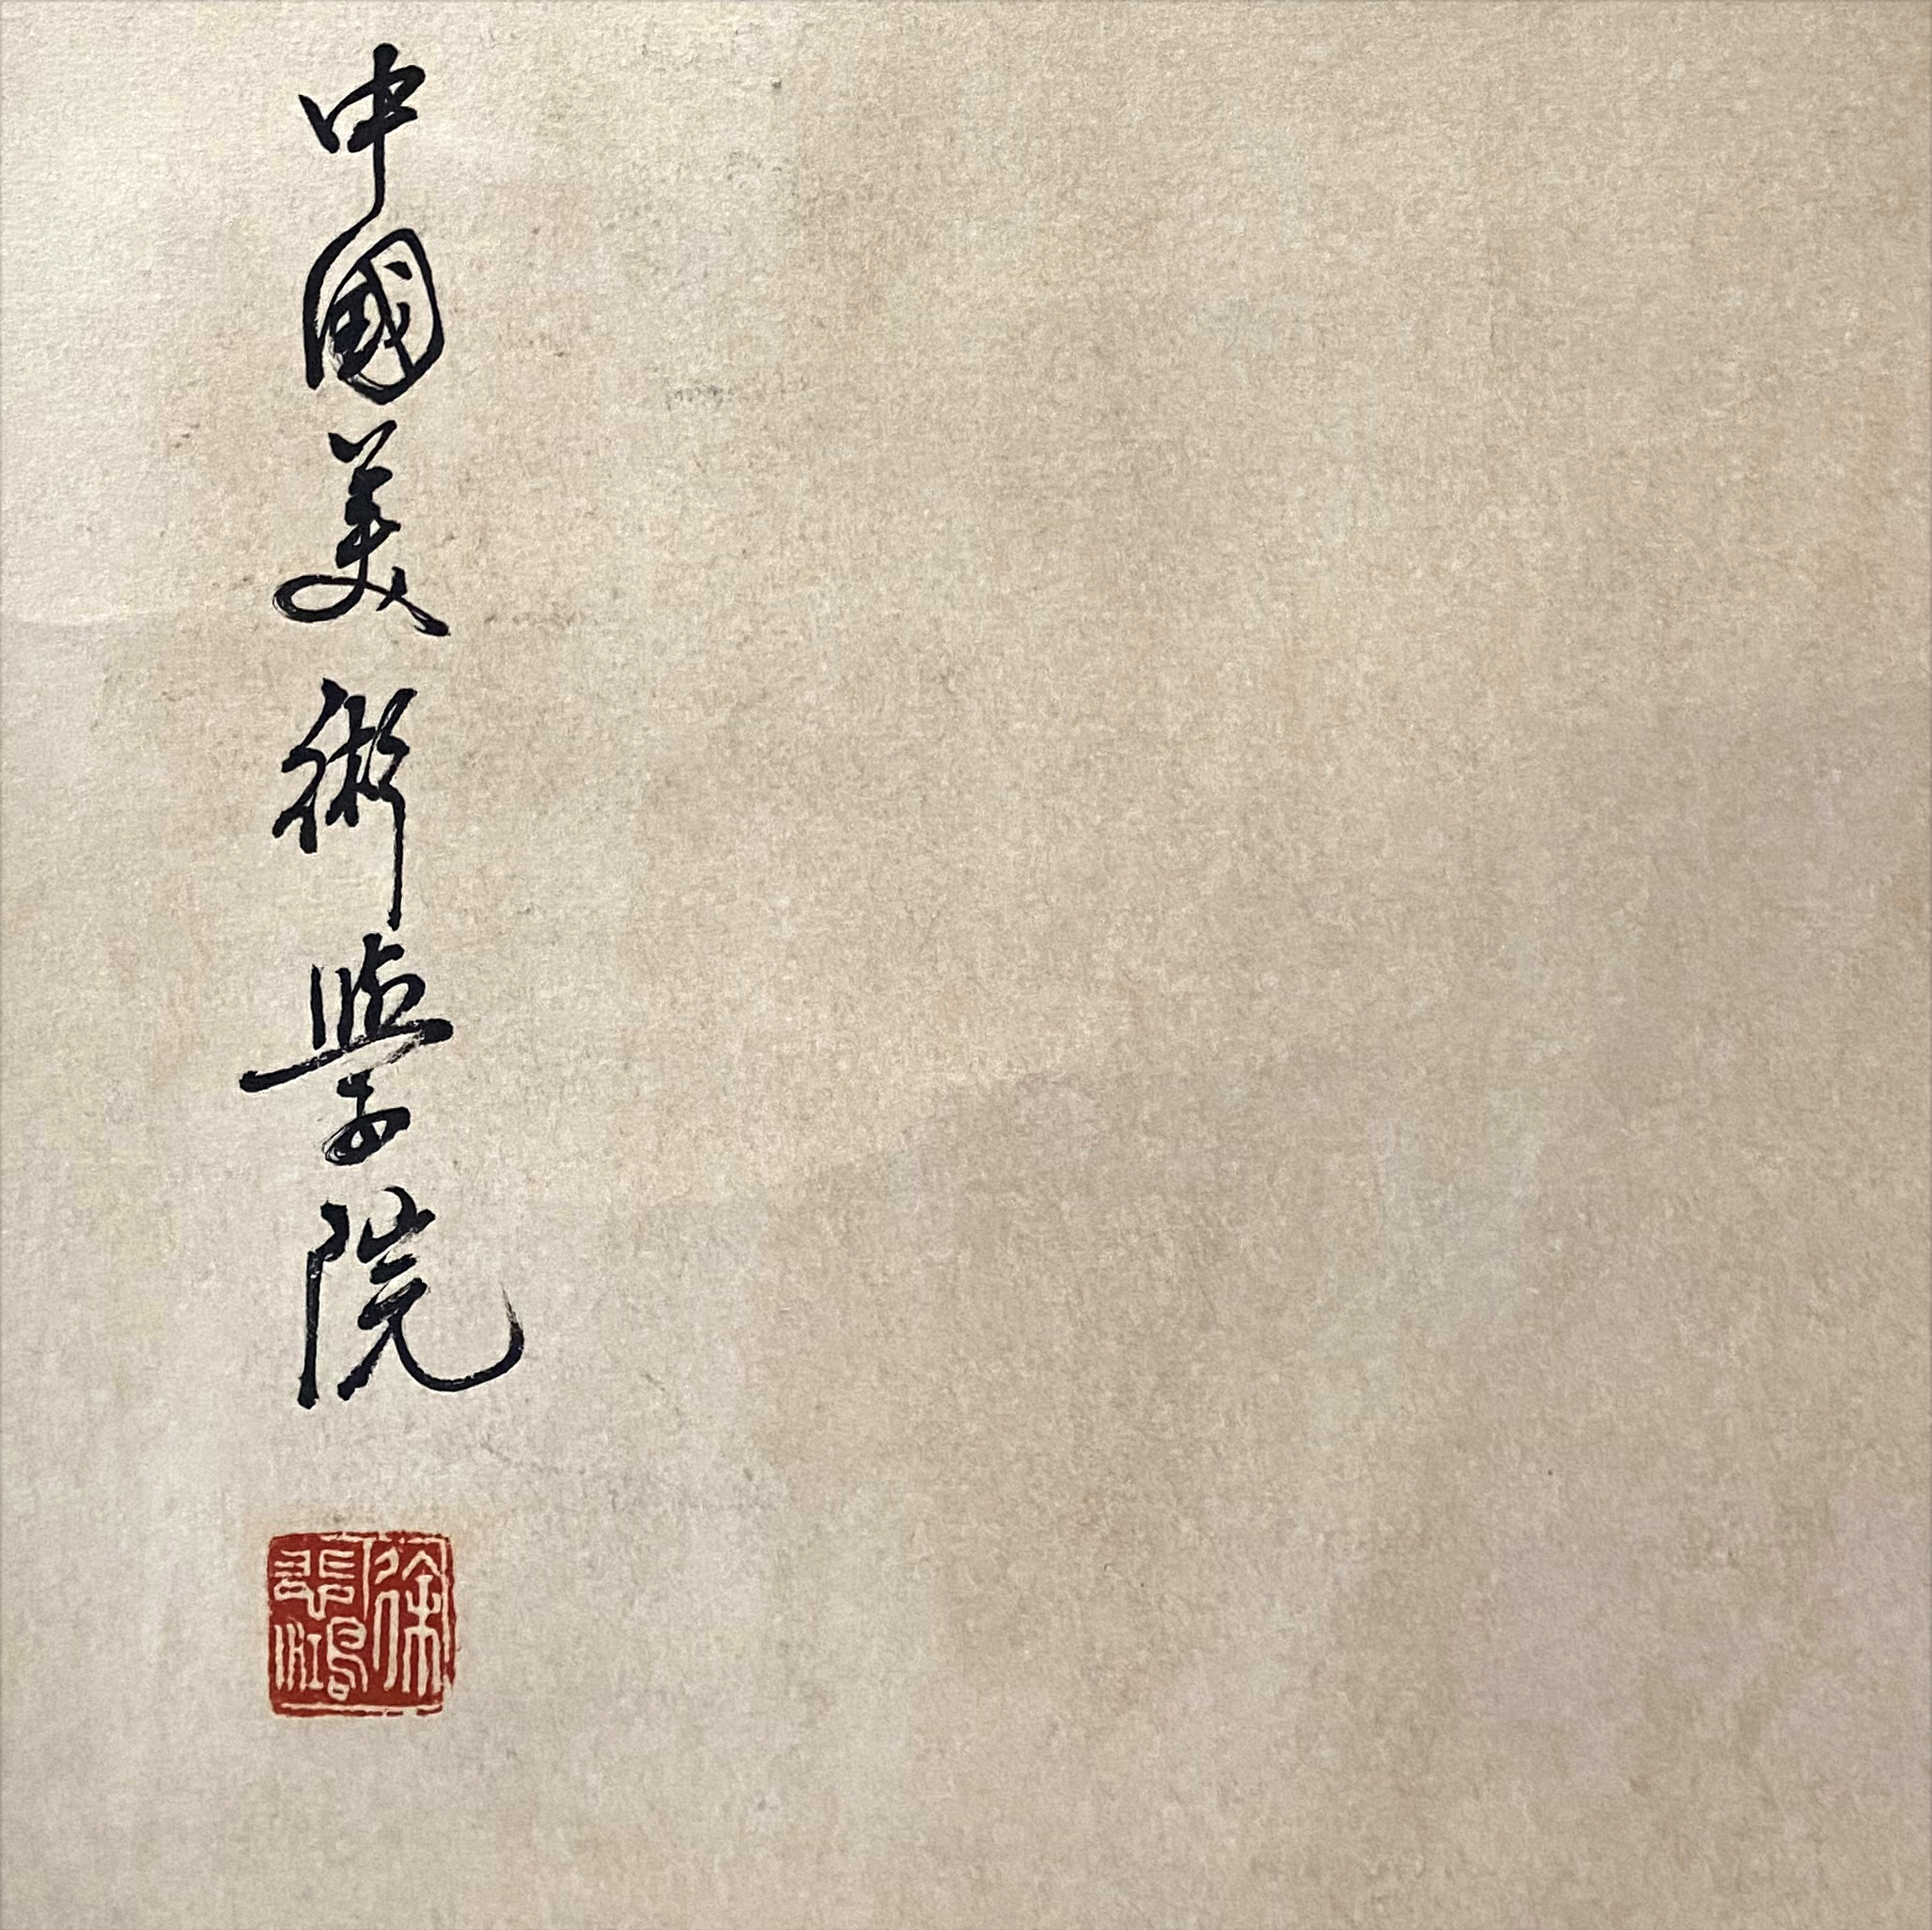 中國美術學院
徐悲鴻